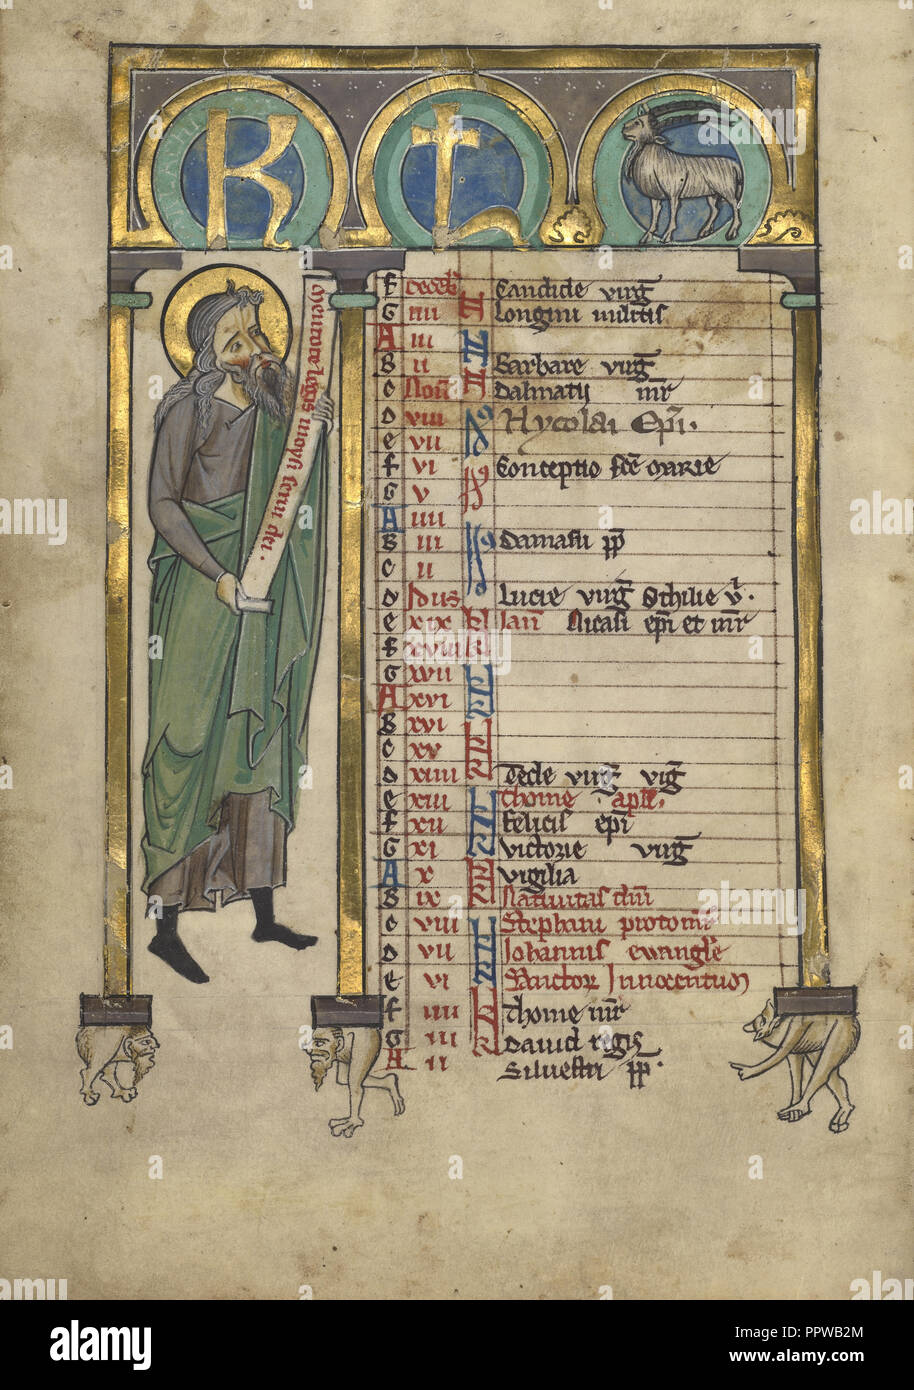 KL
MALACHI
Mementote legis moysi serui dei.
F Decēb Candide virg̃
G iiii N Longini militis
A iii
B ii N Barbare virg̃
C Noñ Dalmatii m̃r
D viii Id Nycolai Ep̃i.
e vii
f vi Id Conceptio sc̃e marie
G v
A iiii
B iii Id Damasii p̃p
C ii
D Idus Lucie virg̃ Othilie v̾.
e xix kł Jañ Nicasii ep̃i et m̃r
f xviii kł
G xvii
A xvi
B xvi
C xv
D xiiii Tecle virg̃ vig̃
e xiii Thome apłi.
f xii Felicis ep̃i
G xi Victorie virg̃
A x Vigilia
B ix Natiuitas dñi
C viii Stephani protom̃r
D vii Johannis ewang̃le
e vi Sanctor Innocentum
f iiii Thome m̃r
G iii kł Dauid regis
A ii Siluestri p̃p.
alamy
Image ID: PPWB2M
www.alamy.com